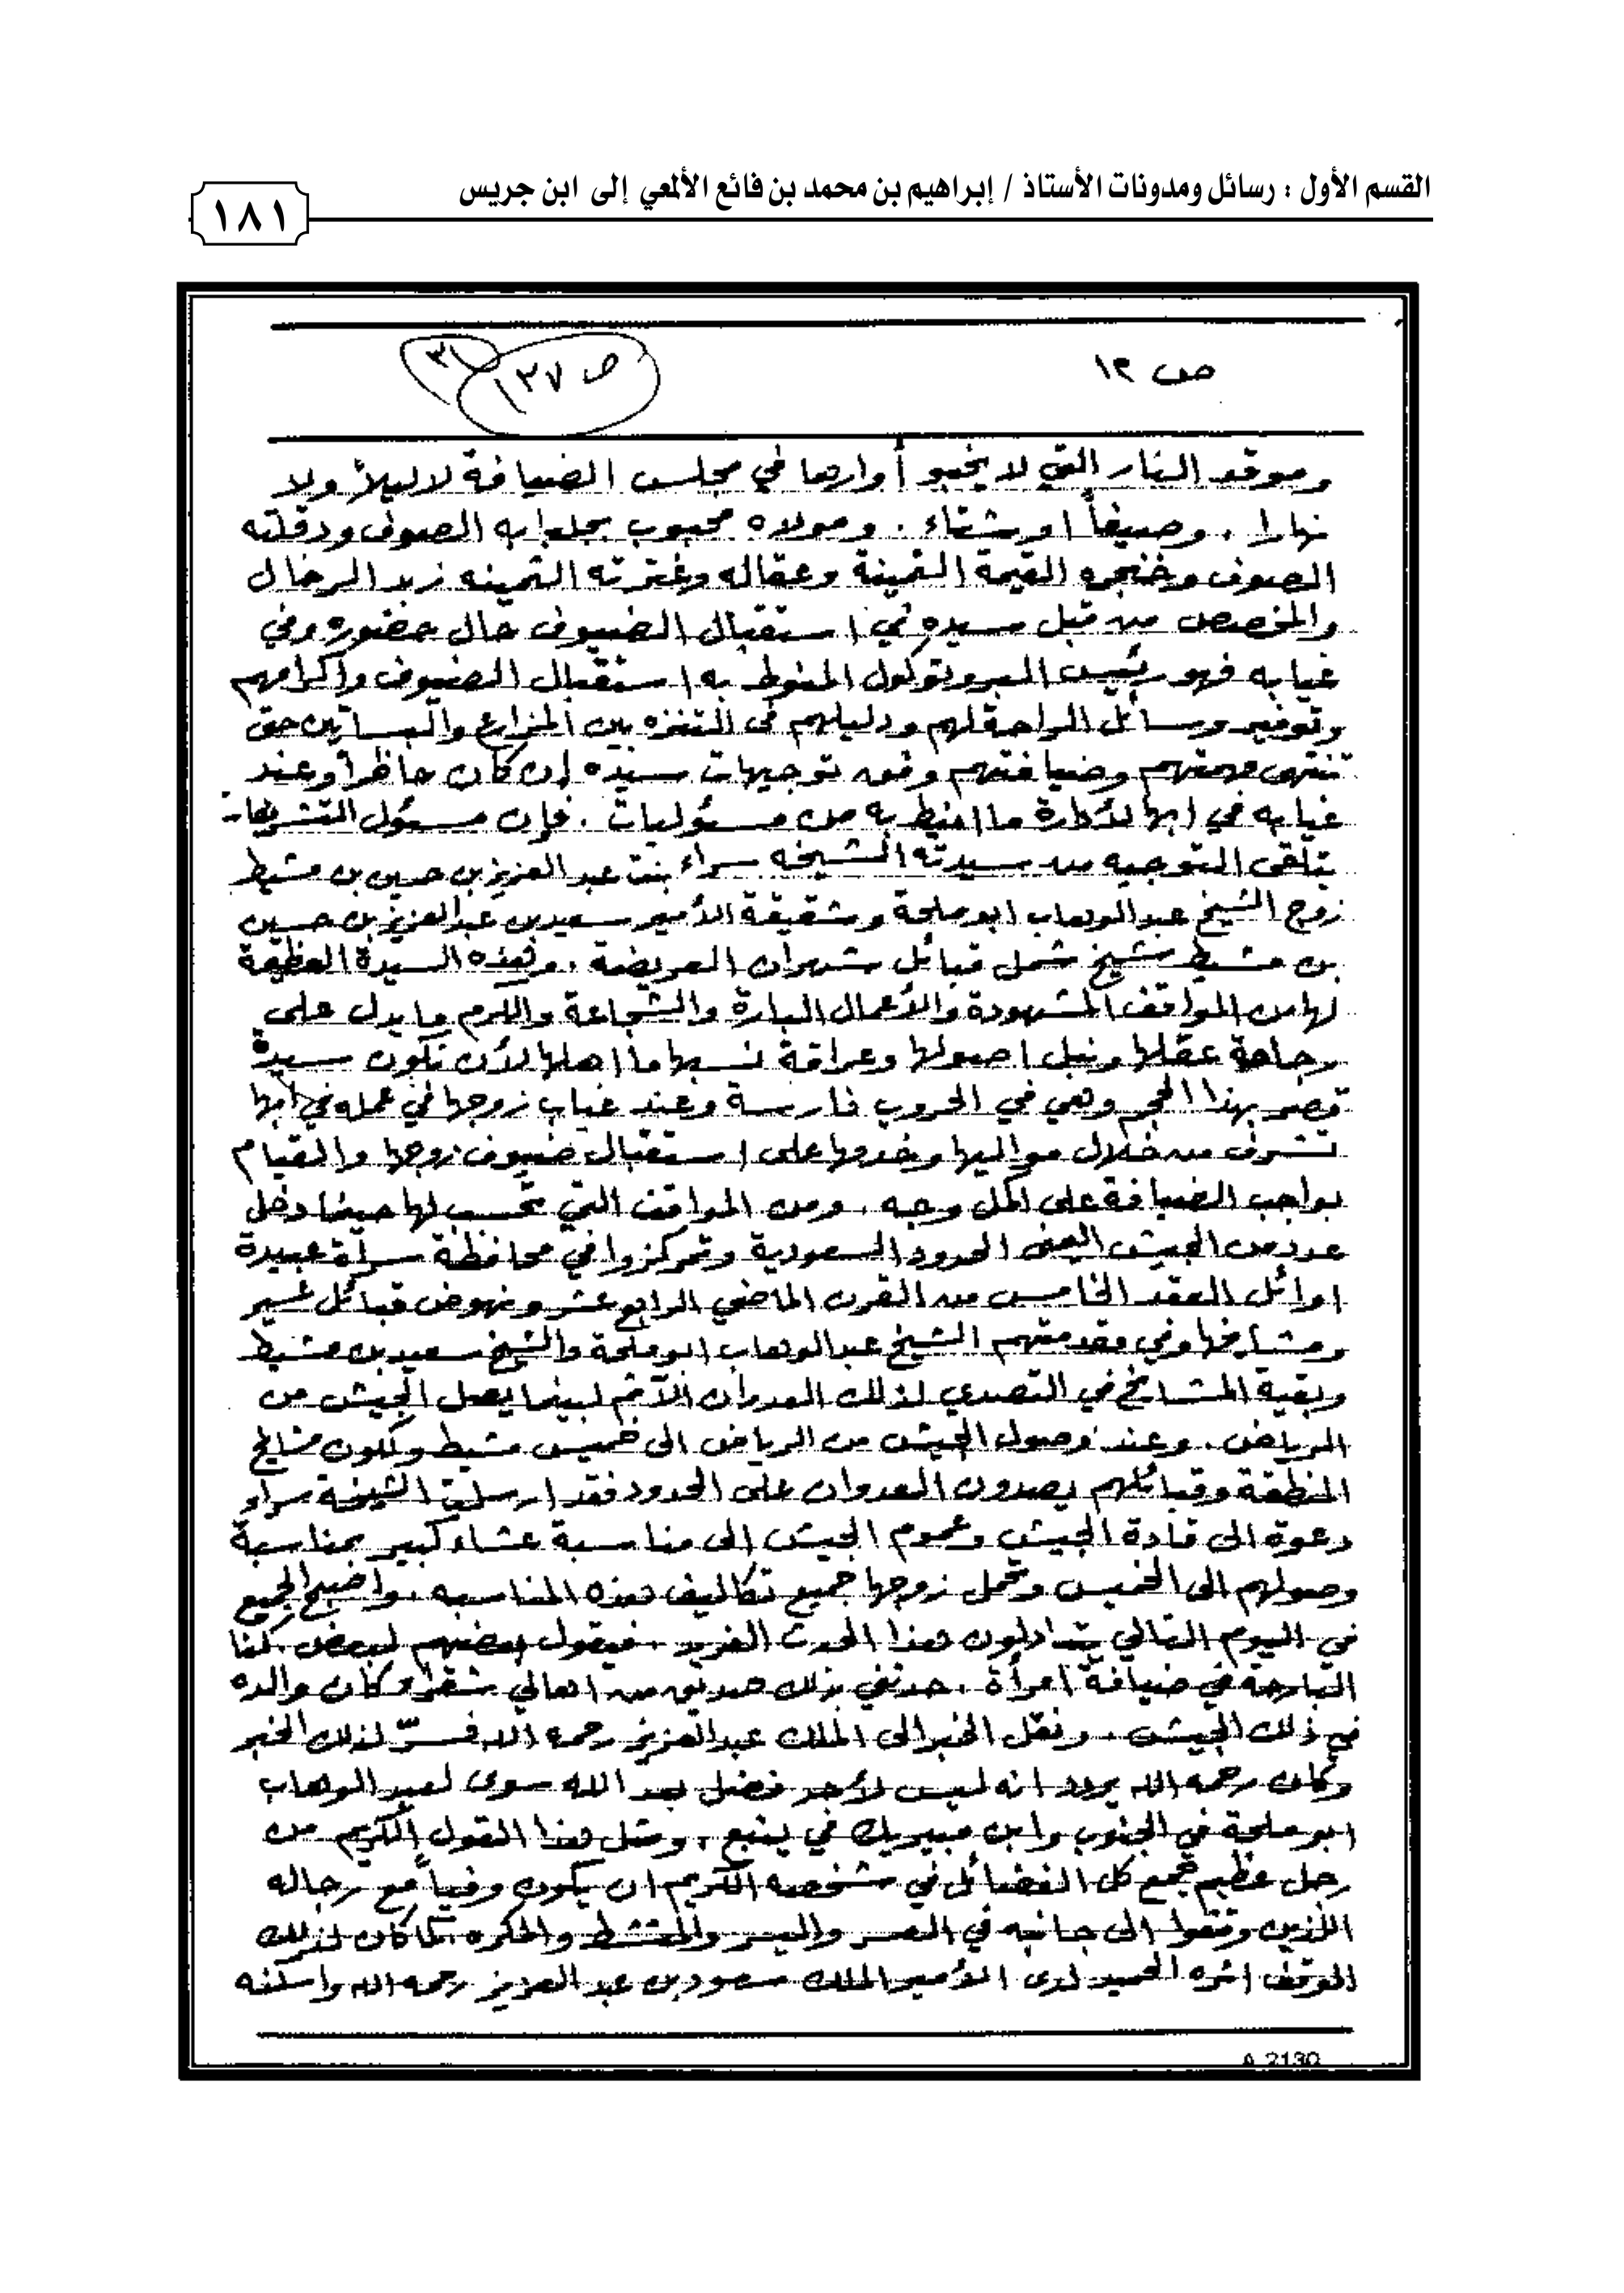 القسم الأول : رسائل ومدونات الأستاذ / إبراهيم بن محمد بن فائع الألمعي إلى ابن جريس
١٨١
ص ١٢
ص ١٣٧
٣١
وموقد النار التي لا يخبو أوارها في مجلس الضيافة لا ليلاً ولا
نهارا . وصيفاً او شتاء . ومولاه محبوب بجلبابه الصوف ودقلته
الصوف وخنجره القيمة الثمينة وعقاله وغترته الثمينه زبد الرجال
والمخصص من قبل سيده في استقبال الضيوف حال حضوره وفي
غيابه فهو رئيس البروتوكول المنوط به استقبال الضيوف وإكرامهم
وتوفير وسائل الراحة لهم ودليلهم في التنزه بين المزارع والبساتين حتى
تنتهي مهمتهم وضيافتهم وفق توجيهات سيده إن كان حاظراً وعند
غيابه في ابها لأدارة ما انيط به من مسئوليات . فإن مسئول التشريفات
يتلقى التوجيه من سيدته الشيخه سراء بنت عبدالعزيز بن حسين بن مشيط
زوج الشيخ عبدالوهاب ابو ملحة وشقيقة الأمير سعيد بن عبدالعزيز بن حسين
بن مشيط شيخ شمل قبائل شهران العريضة . وهذه السيدة العظيمة
لها من المواقف المشهودة والأعمال البارة والشجاعة والكرم ما يدل على
رجاحة عقلها ونبل اصولها وعراقة نسبها ما اهلها لأن تكون سيدة
قصر بهذا الحجم وهي في الحروب فارسة وعند غياب زوجها في عمله في ابها
تشرف من خلال مواليها وخدمها على استقبال ضيوف زوجها والقيام
بواجب الضيافة على اكمل وجه . ومن المواقف التي تحسب لها حينما دخل
عدد من الجيش اليمني الحدود السعودية وتمركزوا في محافظة سرأة عبيدة
اوائل العقد الخامس من القرن الماضي الرابع عشر ونهوض قبائل عسير
ومشايخها وفي مقدمتهم الشيخ عبدالوهاب ابو ملحة والشيخ سعيد بن مشيط
وبقية المشايخ في التصدي لذلك العدوان الآثم لبينما يصل الجيش من
الرياض . وعند وصول الجيش من الرياض الى خميس مشيط وكون مشايخ
المنطقة وقبائلهم يصدون العدوان على الحدود فقد ارسلت الشيخة سراء
دعوة الى قادة الجيش وعموم الجيش إلى مناسبة عشاء كبير بمناسبة
وصولهم الى الخميس وتحمل زوجها جميع تكاليف هذه المناسبه . واصبح الجميع
في اليوم التالي يتداولون هذا الحدث الفريد . فيقول بعضهم لبعض كنا
البارحة في ضيافة امرأة . حدثني بذلك صديق من اهالي شقراء وكان والده
في ذلك الجيش . ونقل الخبر الى الملك عبدالعزيز رحمه الله فسرّ لذلك الخبر
وكان رحمه الله يردد انه ليس لأحد فضل بعد الله سوى لعبد الوهاب
ابو ملحة في الجنوب وابن مبيريك في ينبع . ومثل هذا القول الكريم من
رجل عظيم تجمع كل الفضائل في شخصه الكريم ان يكون وفياً مع رجاله
اللذين وقفوا الى جانبه في العسر واليسر والمنشط والمكره كما كان لذلك
الموقف اثره الحميد لدى الأمير الملك سعود بن عبد العزيز رحمه الله واسكنه
A 2130